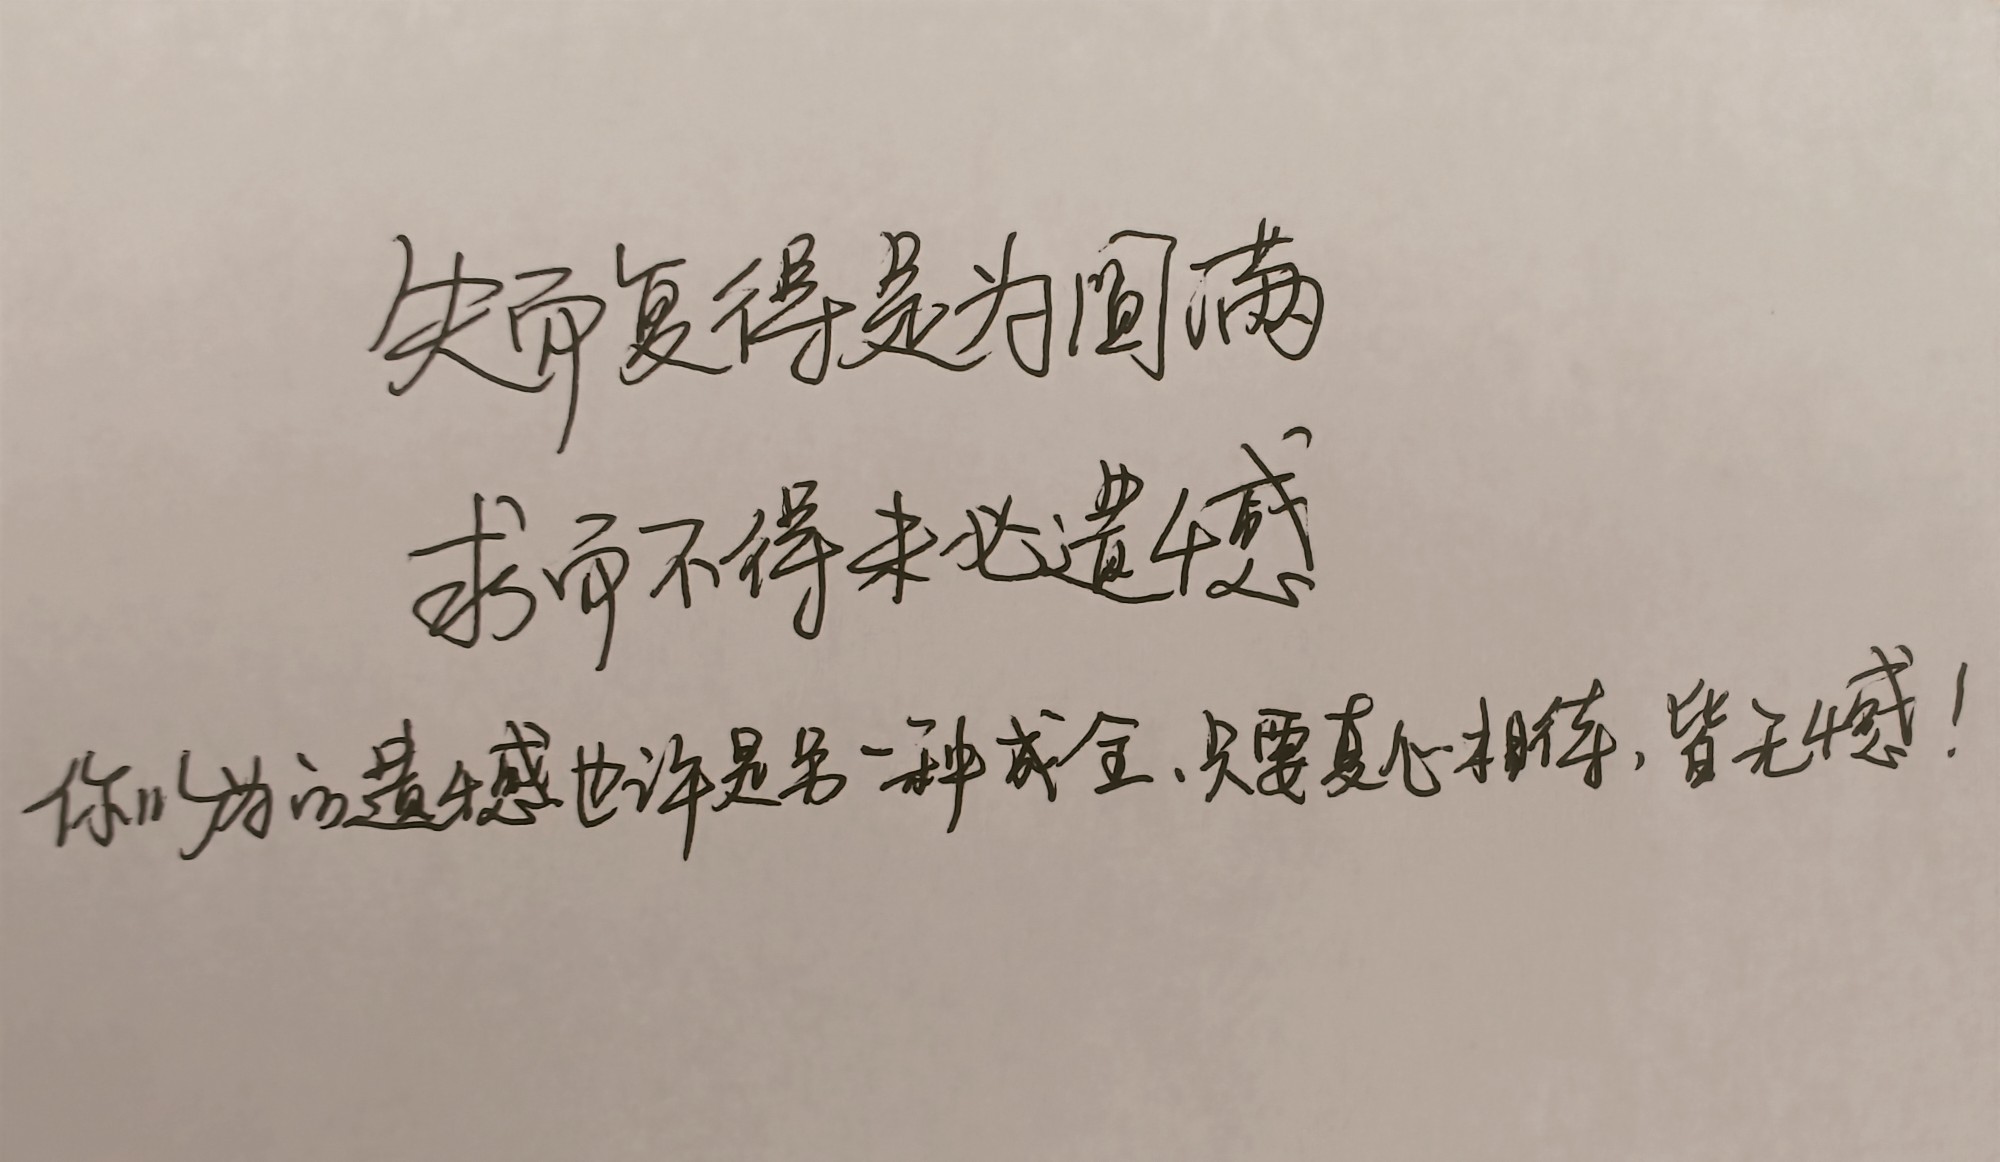 失而复得是为圆满
求而不得未必遗憾
你以为的遗憾也许是另一种成全、只要真心相待，皆无憾！